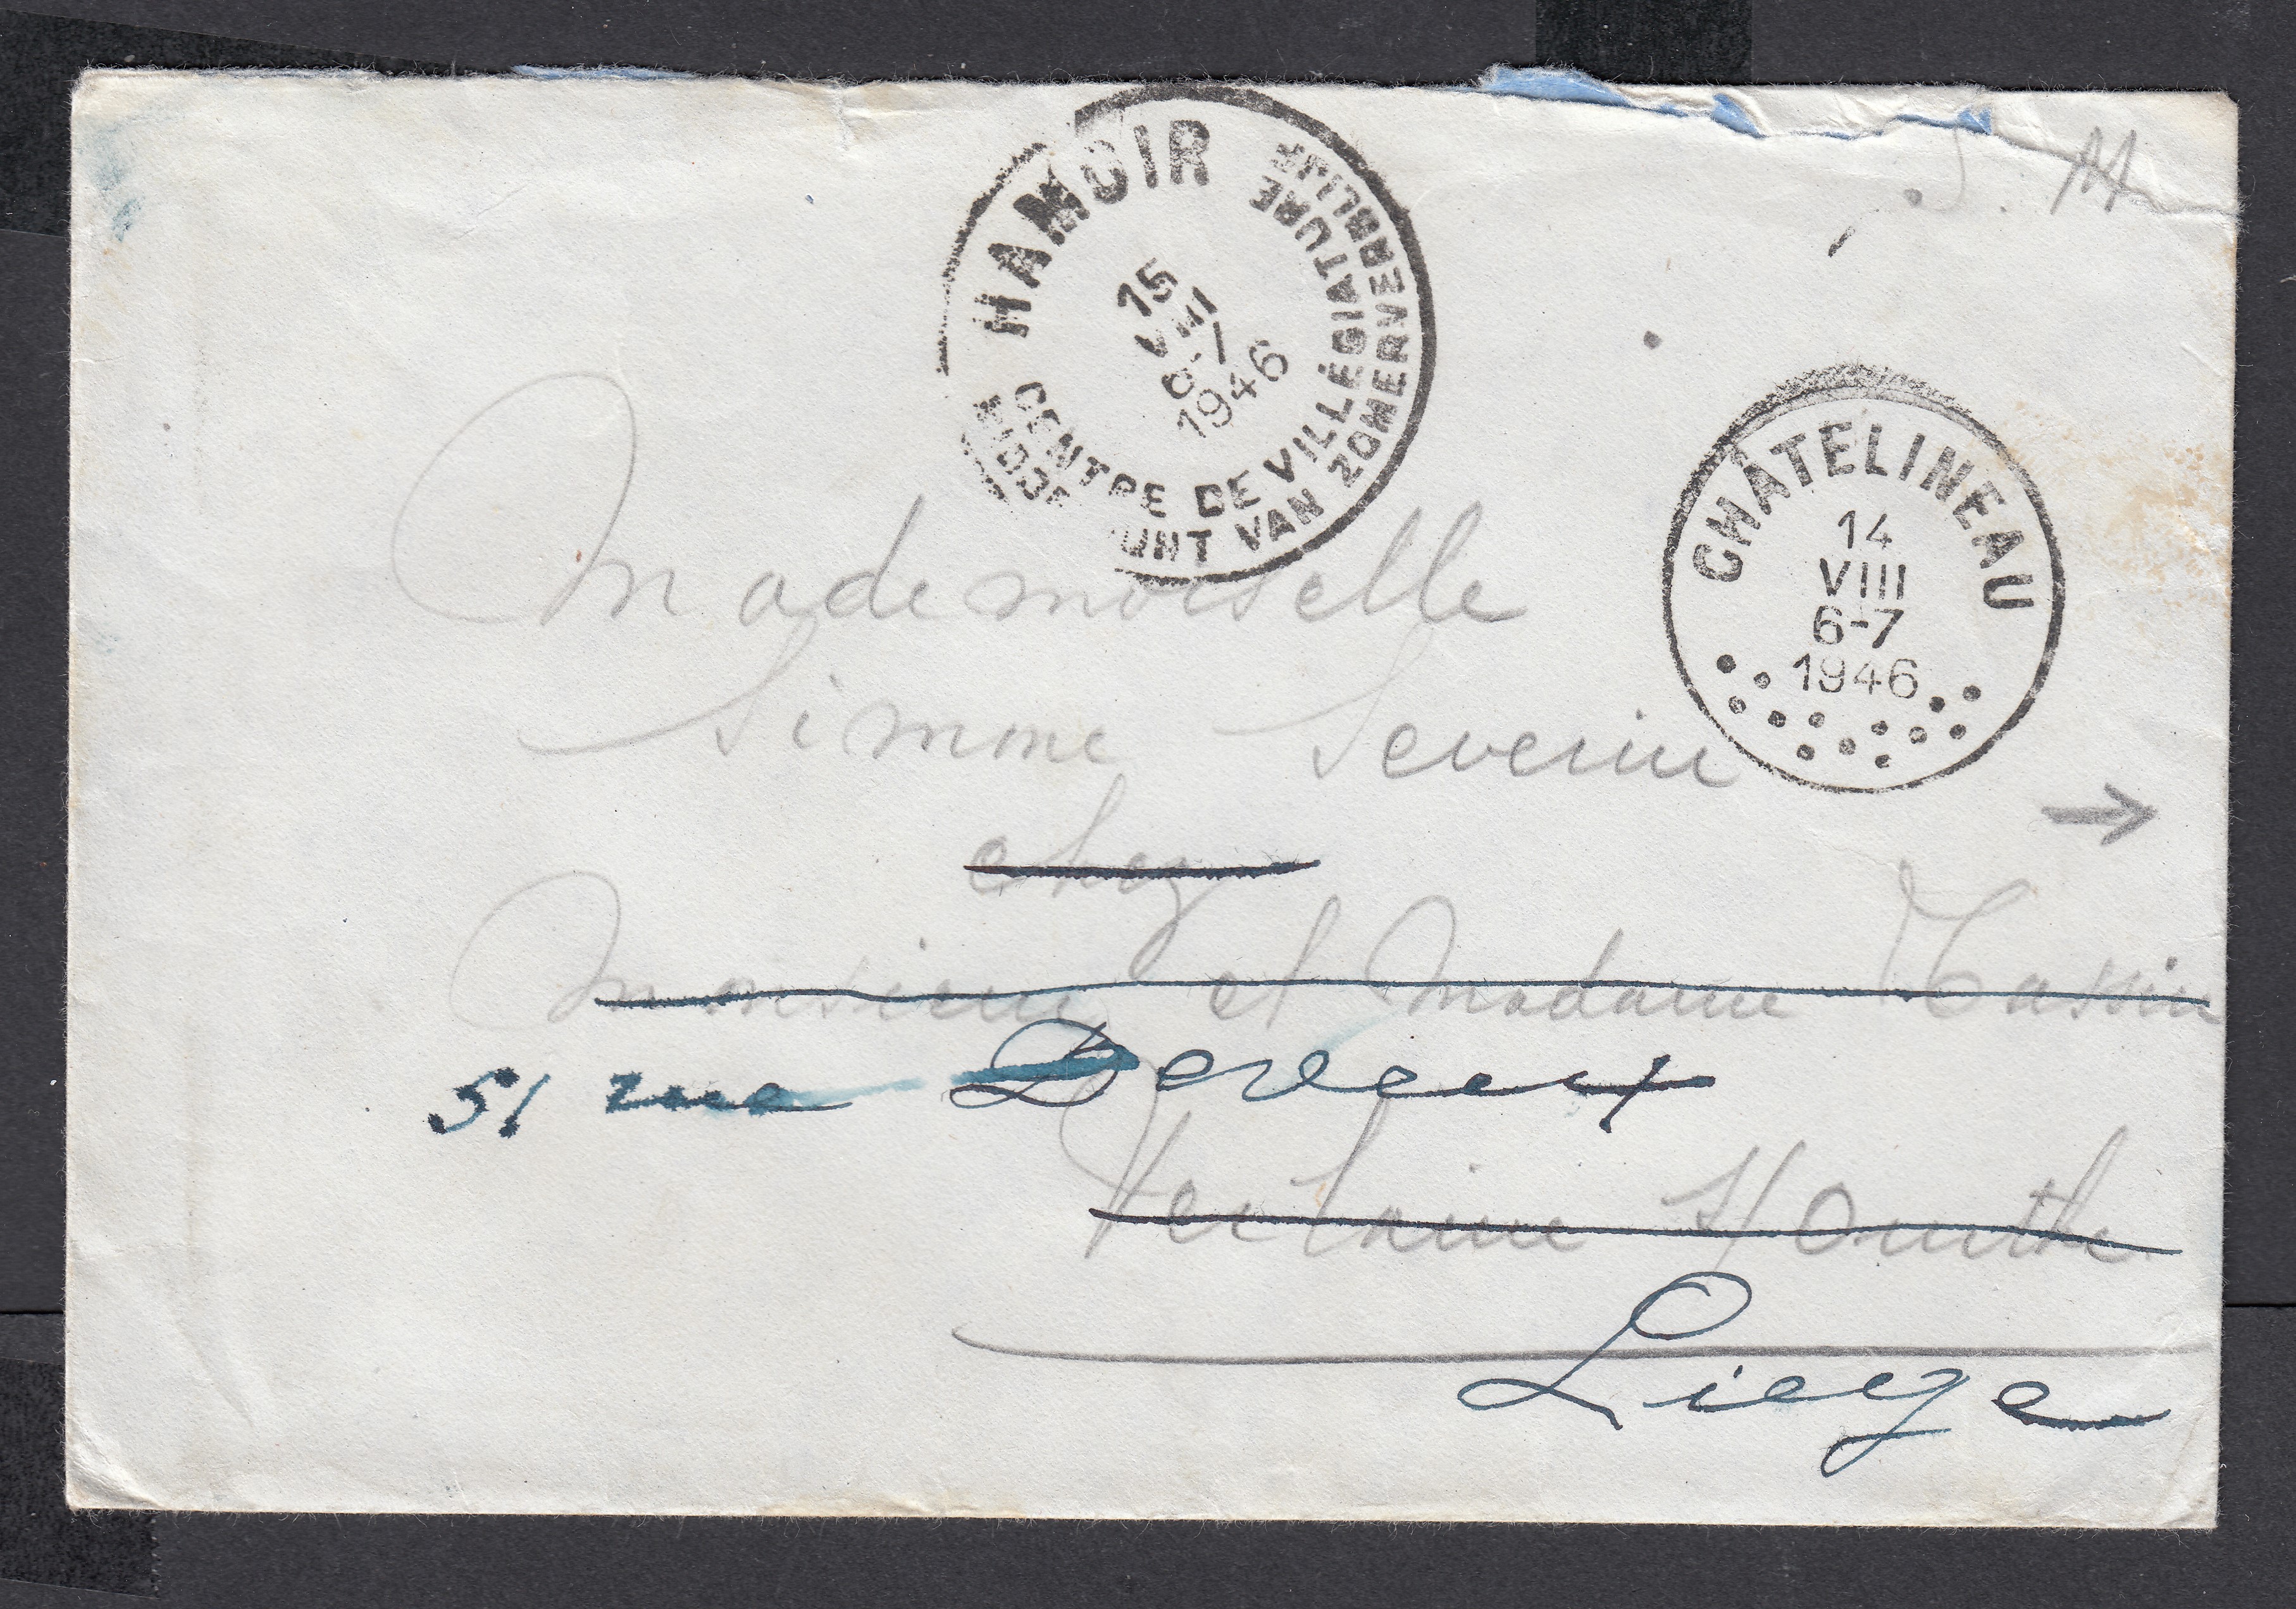 S. M
HAMOIR
15
VIII
6-7
1946
CENTRE DE VILLÉGIATURE
MIDDELPUNT VAN ZOMERVERBLIJF
CHÂTELINEAU
14
VIII
6-7
1946
Mademoiselle
Simone Severin
chez
Monsieur et Madame Tassin
51 rue Deveux
Verlaine s/ Ourthe
Liege